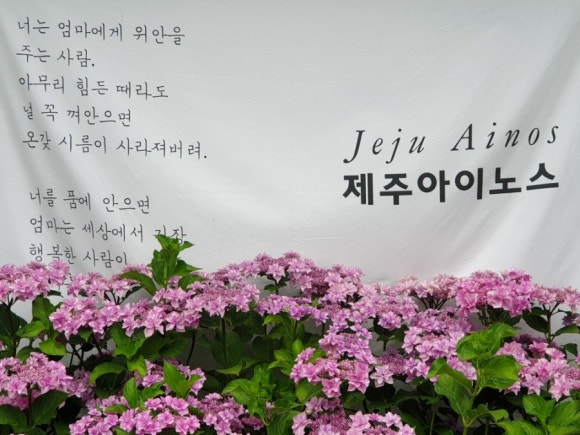 너는 엄마에게 위안을
주는 사람.
아무리 힘든 때라도
널 꼭 껴안으면
온갖 시름이 사라져버려.
너를 품에 안으면
엄마는 세상에서 가장
행복한 사람이
Jeju Ainos
제주아이노스